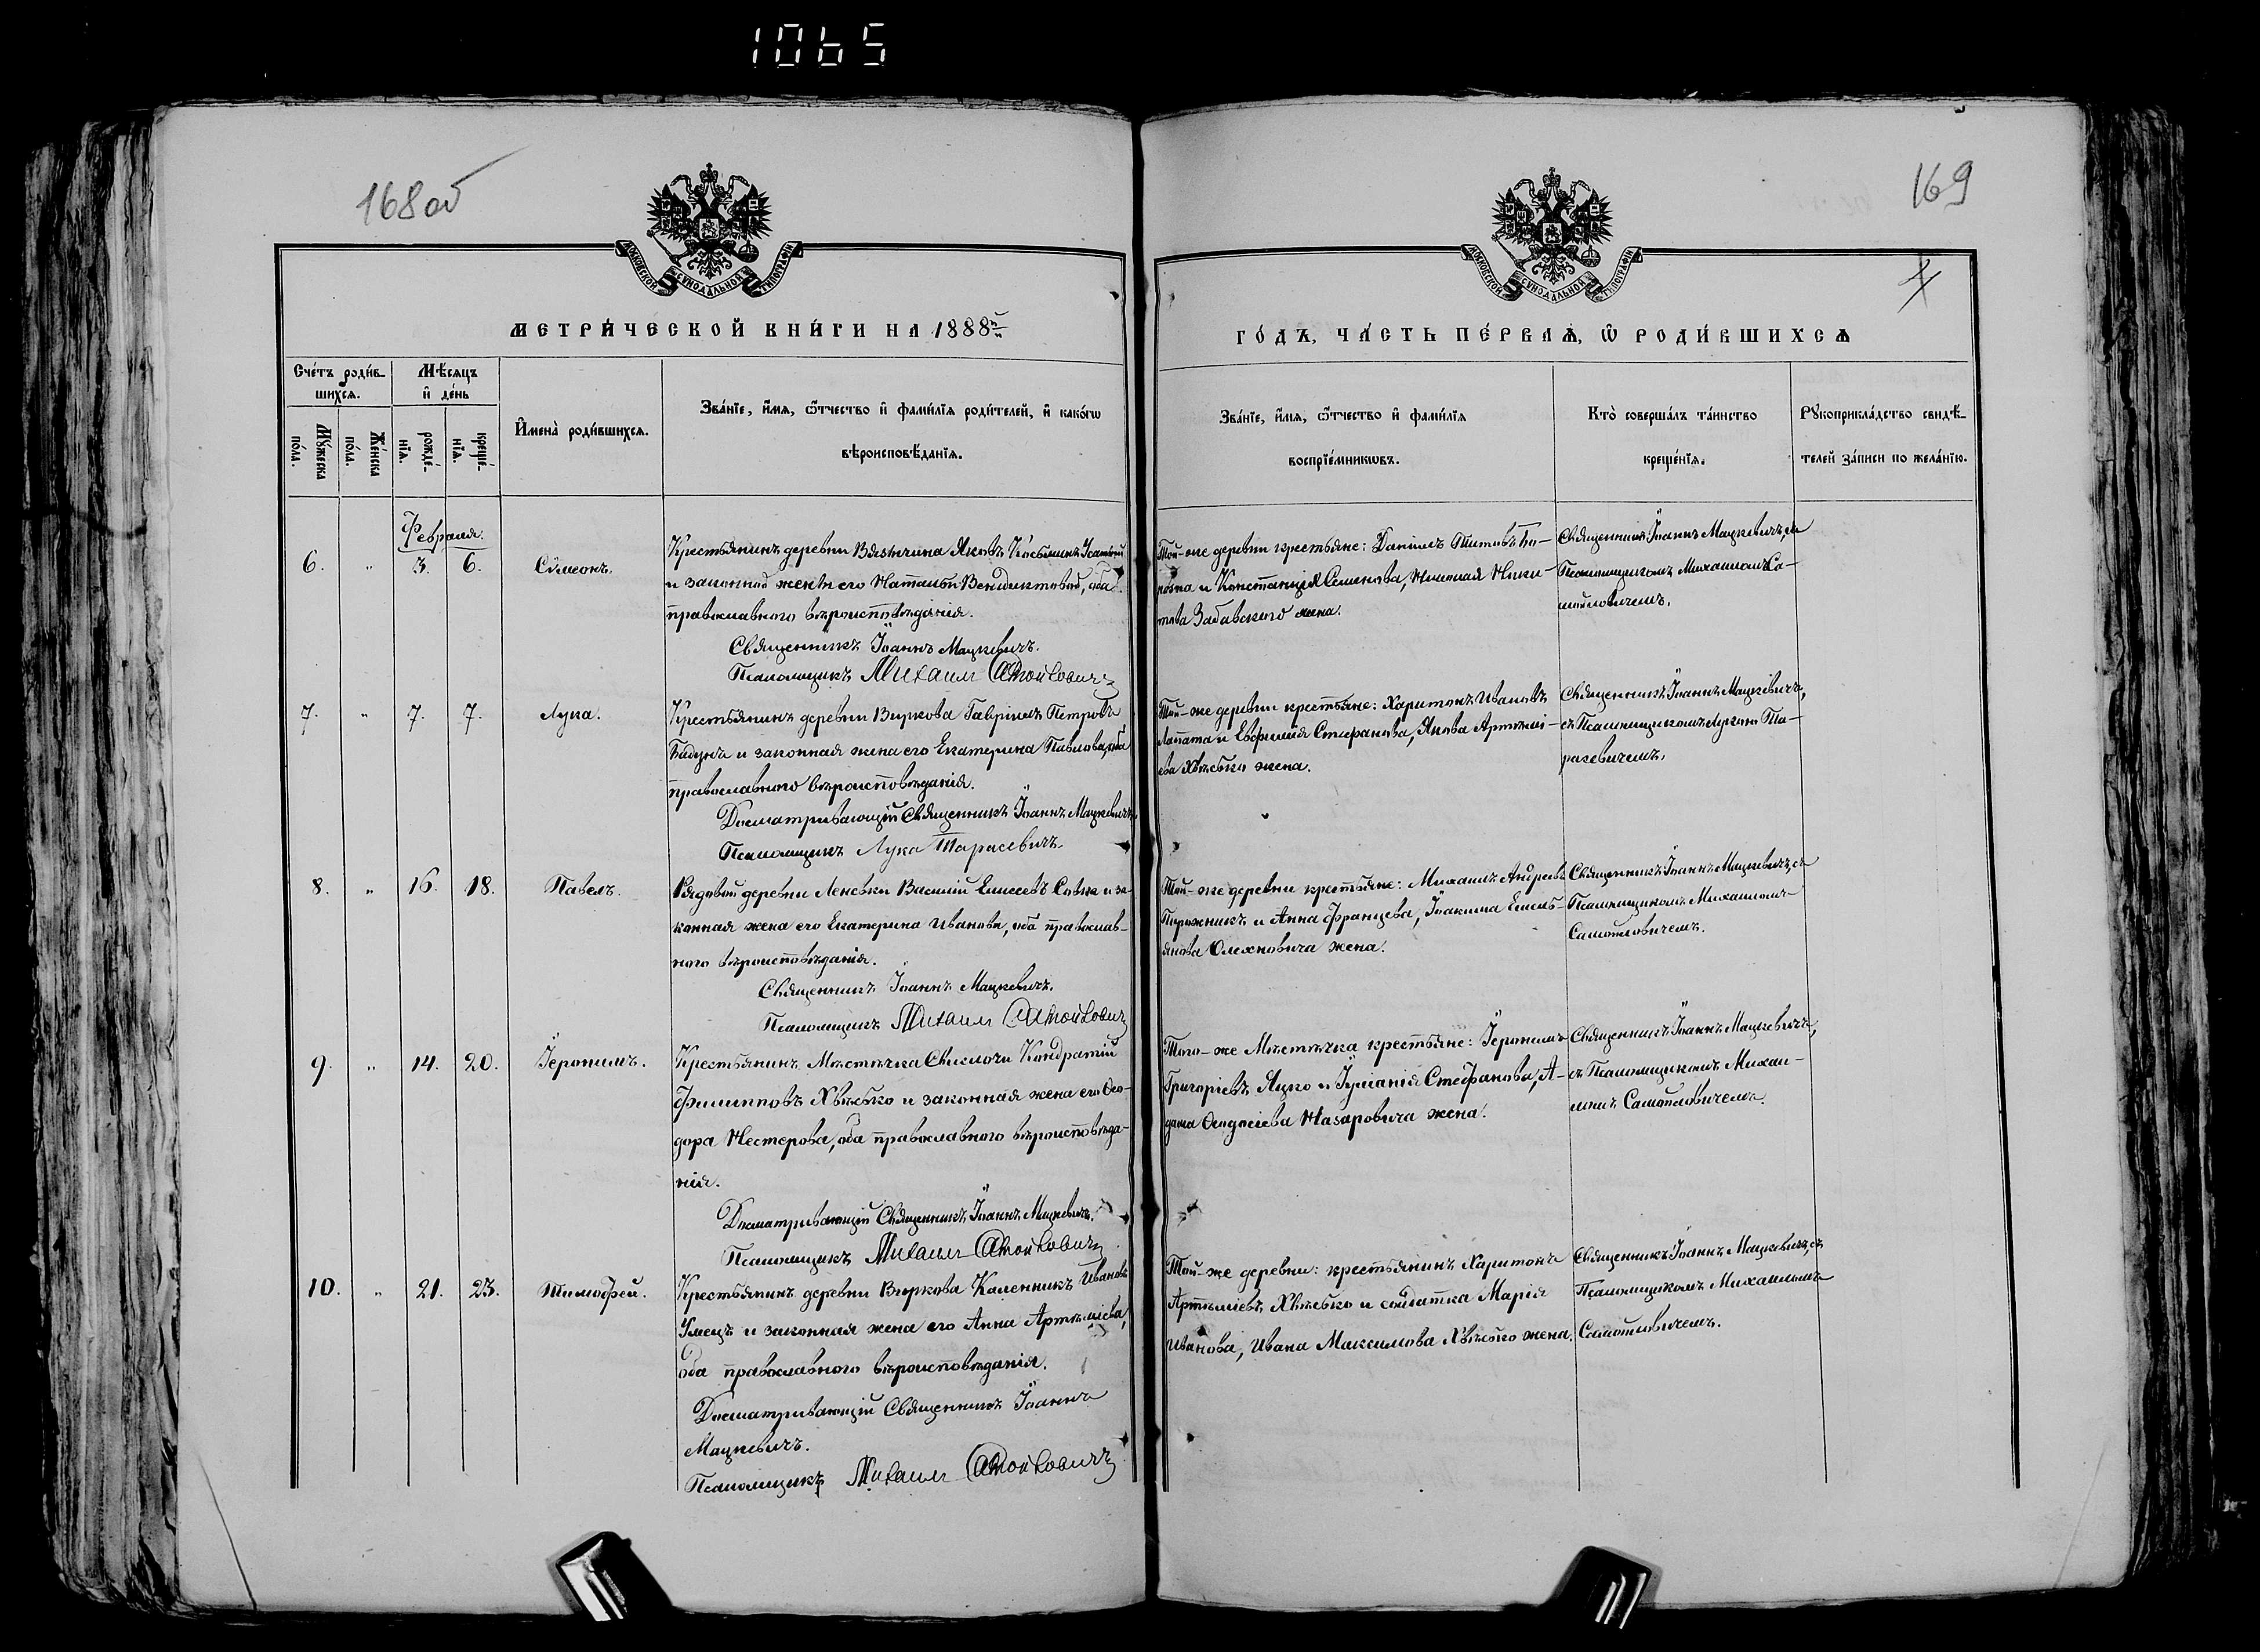 1065
168об
169
МОСКОВСКОЙ СѴНОДАЛЬНОЙ ТИПОГРАФІИ
МОСКОВСКОЙ СѴНОДАЛЬНОЙ ТИПОГРАФІИ
МЕТРИ́ЧЕСКОЙ КНИ́ГИ НА 1888й
ГО́ДЪ, ЧА́СТЬ ПЕ́РВАѦ, Ѡ҆ РОДИ́ВШИХСѦ
Сче́тъ роди́в-
шихсѧ.
Мѣ́сѧцъ
и҆ де́нь
Мꙋ́жеска
по́ла.
Же́нска
по́ла.
рожде́-
нїѧ.
креще́-
нїѧ.
И҆мена̀ роди́вшихсѧ.
Зва́нїе, и҆́мѧ, ѻ҆́тчество и҆ фами́лїѧ роди́телей, и҆ како́гѡ
вѣроисповѣ́данїѧ.
Зва́нїе, и҆́мѧ, ѻ҆́тчество и҆ фами́лїѧ
воспрїе́мникѡвъ.
Кто̀ соверша́лъ та́инство
креще́нїѧ.
Рꙋкоприкла́дство свидѣ́-
телей за́писи по жела́нїю.
Февраля.
6. " 3. 6. Сѵмеонъ.
Крестьянинъ деревни Вязычина Яковъ
и законной жены его Наталья Вендиктовой, оба
православнаго вѣроисповѣданія.
Священникъ Іоаннъ Мацкевичъ.
Псаломщикъ Михаилъ Самойловичъ
Той-же деревни крестьяне: Даніилъ Титовъ
и Констанція Семенова, Николая Ники-
това Забавскаго жена.
Священникъ Іоаннъ Мацкевичъ, съ
Псаломщикомъ Михаиломъ Са-
мойловичемъ.
7. " 7. 7. Лука.
Крестьянинъ деревни Виркова Гавріилъ Петровъ
Бадунъ и законная жена его Екатерина Павлова, оба
православнаго вѣроисповѣданія.
Досматривающій Священникъ Іоаннъ Мацкевичъ.
Псаломщикъ Лука Тарасевичъ.
Той-же деревни крестьяне: Харитонъ Ивановъ
Лапата и Евфимія Стефанова, Якова Артемі-
ева Хвѣсько жена.
Священникъ Іоаннъ Мацкевичъ,
съ Псаломщикомъ Лукою Та-
расевичемъ.
8. " 16. 18. Павелъ.
Рядовой деревни Леневки Василій Елисеевъ Совка и за-
конная жена его Екатерина Иванова, оба православ-
наго вѣроисповѣданія.
Священникъ Іоаннъ Мацкевичъ.
Псаломщикъ Михаилъ Самойловичъ
Той-же деревни крестьяне: Михаилъ Андреевъ
Пирожникъ и Анна Францева, Іоакима Емель-
янова Олехновича жена.
Священникъ Іоаннъ Мацкевичъ, съ
Псаломщикомъ Михаиломъ
Самойловичемъ.
9. " 14. 20. Іеронимъ.
Крестьянинъ Мѣстечка Свислочи Кондратій
Филипповъ Хвѣсько и законная жена его Ѳео-
дора Нестерова, оба православнаго вѣроисповѣда-
нія.
Досматривающій Священникъ Іоаннъ Мацкевичъ.
Псаломщикъ Михаилъ Самойловичъ
Того-же Мѣстечка крестьяне: Іеронимъ
Григоріевъ Яцко и Іуліанія Стефанова, А-
дама Ѳеодосіева Назаровича жена.
Священникъ Іоаннъ Мацкевичъ,
съ Псаломщикомъ Михаи-
ломъ Самойловичемъ.
10. " 21. 23. Тимофей.
Крестьянинъ деревни Виркова Каленникъ Ивановъ
Умецъ и законная жена его Анна Артеміева,
оба православнаго вѣроисповѣданія.
Досматривающій Священникъ Іоаннъ
Мацкевичъ.
Псаломщикъ Михаилъ Самойловичъ
Той-же деревни: крестьянинъ Харитонъ
Артеміевъ Хвѣсько и солдатка Марія
Иванова, Ивана Максимова Хвѣсько жена.
Священникъ Іоаннъ Мацкевичъ, съ
Псаломщикомъ Михаиломъ
Самойловичемъ.